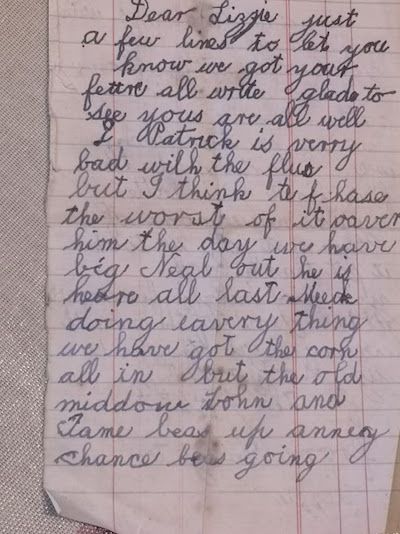 Dear Lizzie just
a few lines to let you
know we got your
all write glad to
see yous are all well
Patrick is verry
bad with the flue
but I think
the worst of it oaver
him the day we have
big Neal out he is
heare all last Week
doing eavery thing
we have got the corn
all in but the old
middow Bohn and
Jame beas up anney
chance beas going